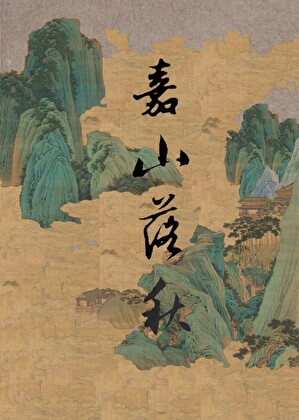 嘉山落秋